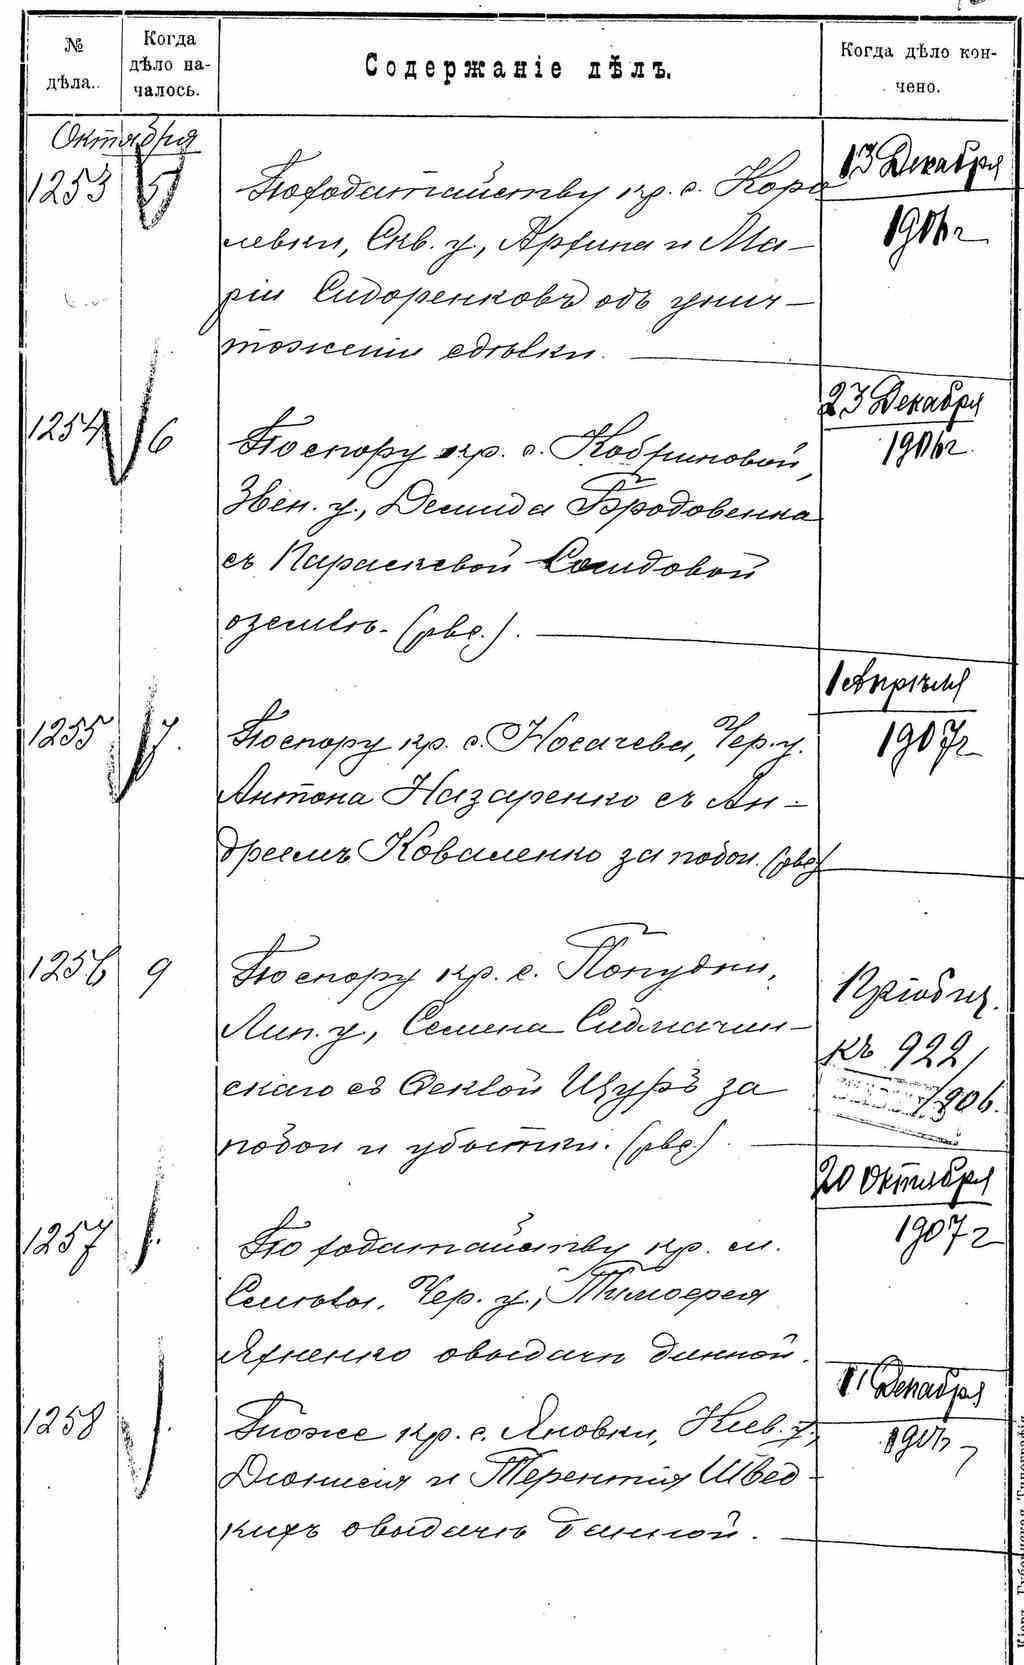 № дѣла.
Когда дѣло началось.
Содержаніе дѣлъ.
Когда дѣло кончено.
Октября
1253 5 По ходатайству кр. с. Коро
левки, Скв. у., Архипа и Ма-
ріи Сидоренковъ объ унич-
тоженіи сдѣлки.
13 Декабря
1906 г
1254 6 По спору кр. с. Кобриновой,
Звен. у., Демида Бродовенка
съ Параскевой
о землѣ.
23 Декабря
1906 г.
1255 7. По спору кр. с. Носачева, Чер. у.
Антона Назаренко съ Ан-
дреемъ Коваленко за побои.
1 Апрѣля
1907 г
1256 9 По спору кр. с. Попудни,
Лип. у., Семена
скаго съ Феклой Щуръ за
побои и убытки.
Пріобщ.
къ 922/
/906.
1257 По ходатайству кр. м.
Смѣлы, Чер. у., Тимофея
Яхненко о выдачи данной.
20 Октября
1907 г
1258 Тоже кр. с. Яновки, Кіев. у.,
Діонисія и Терентія Швед-
кихъ о выдачѣ данной.
11 Декабря
Кіев. Губернская Типографія